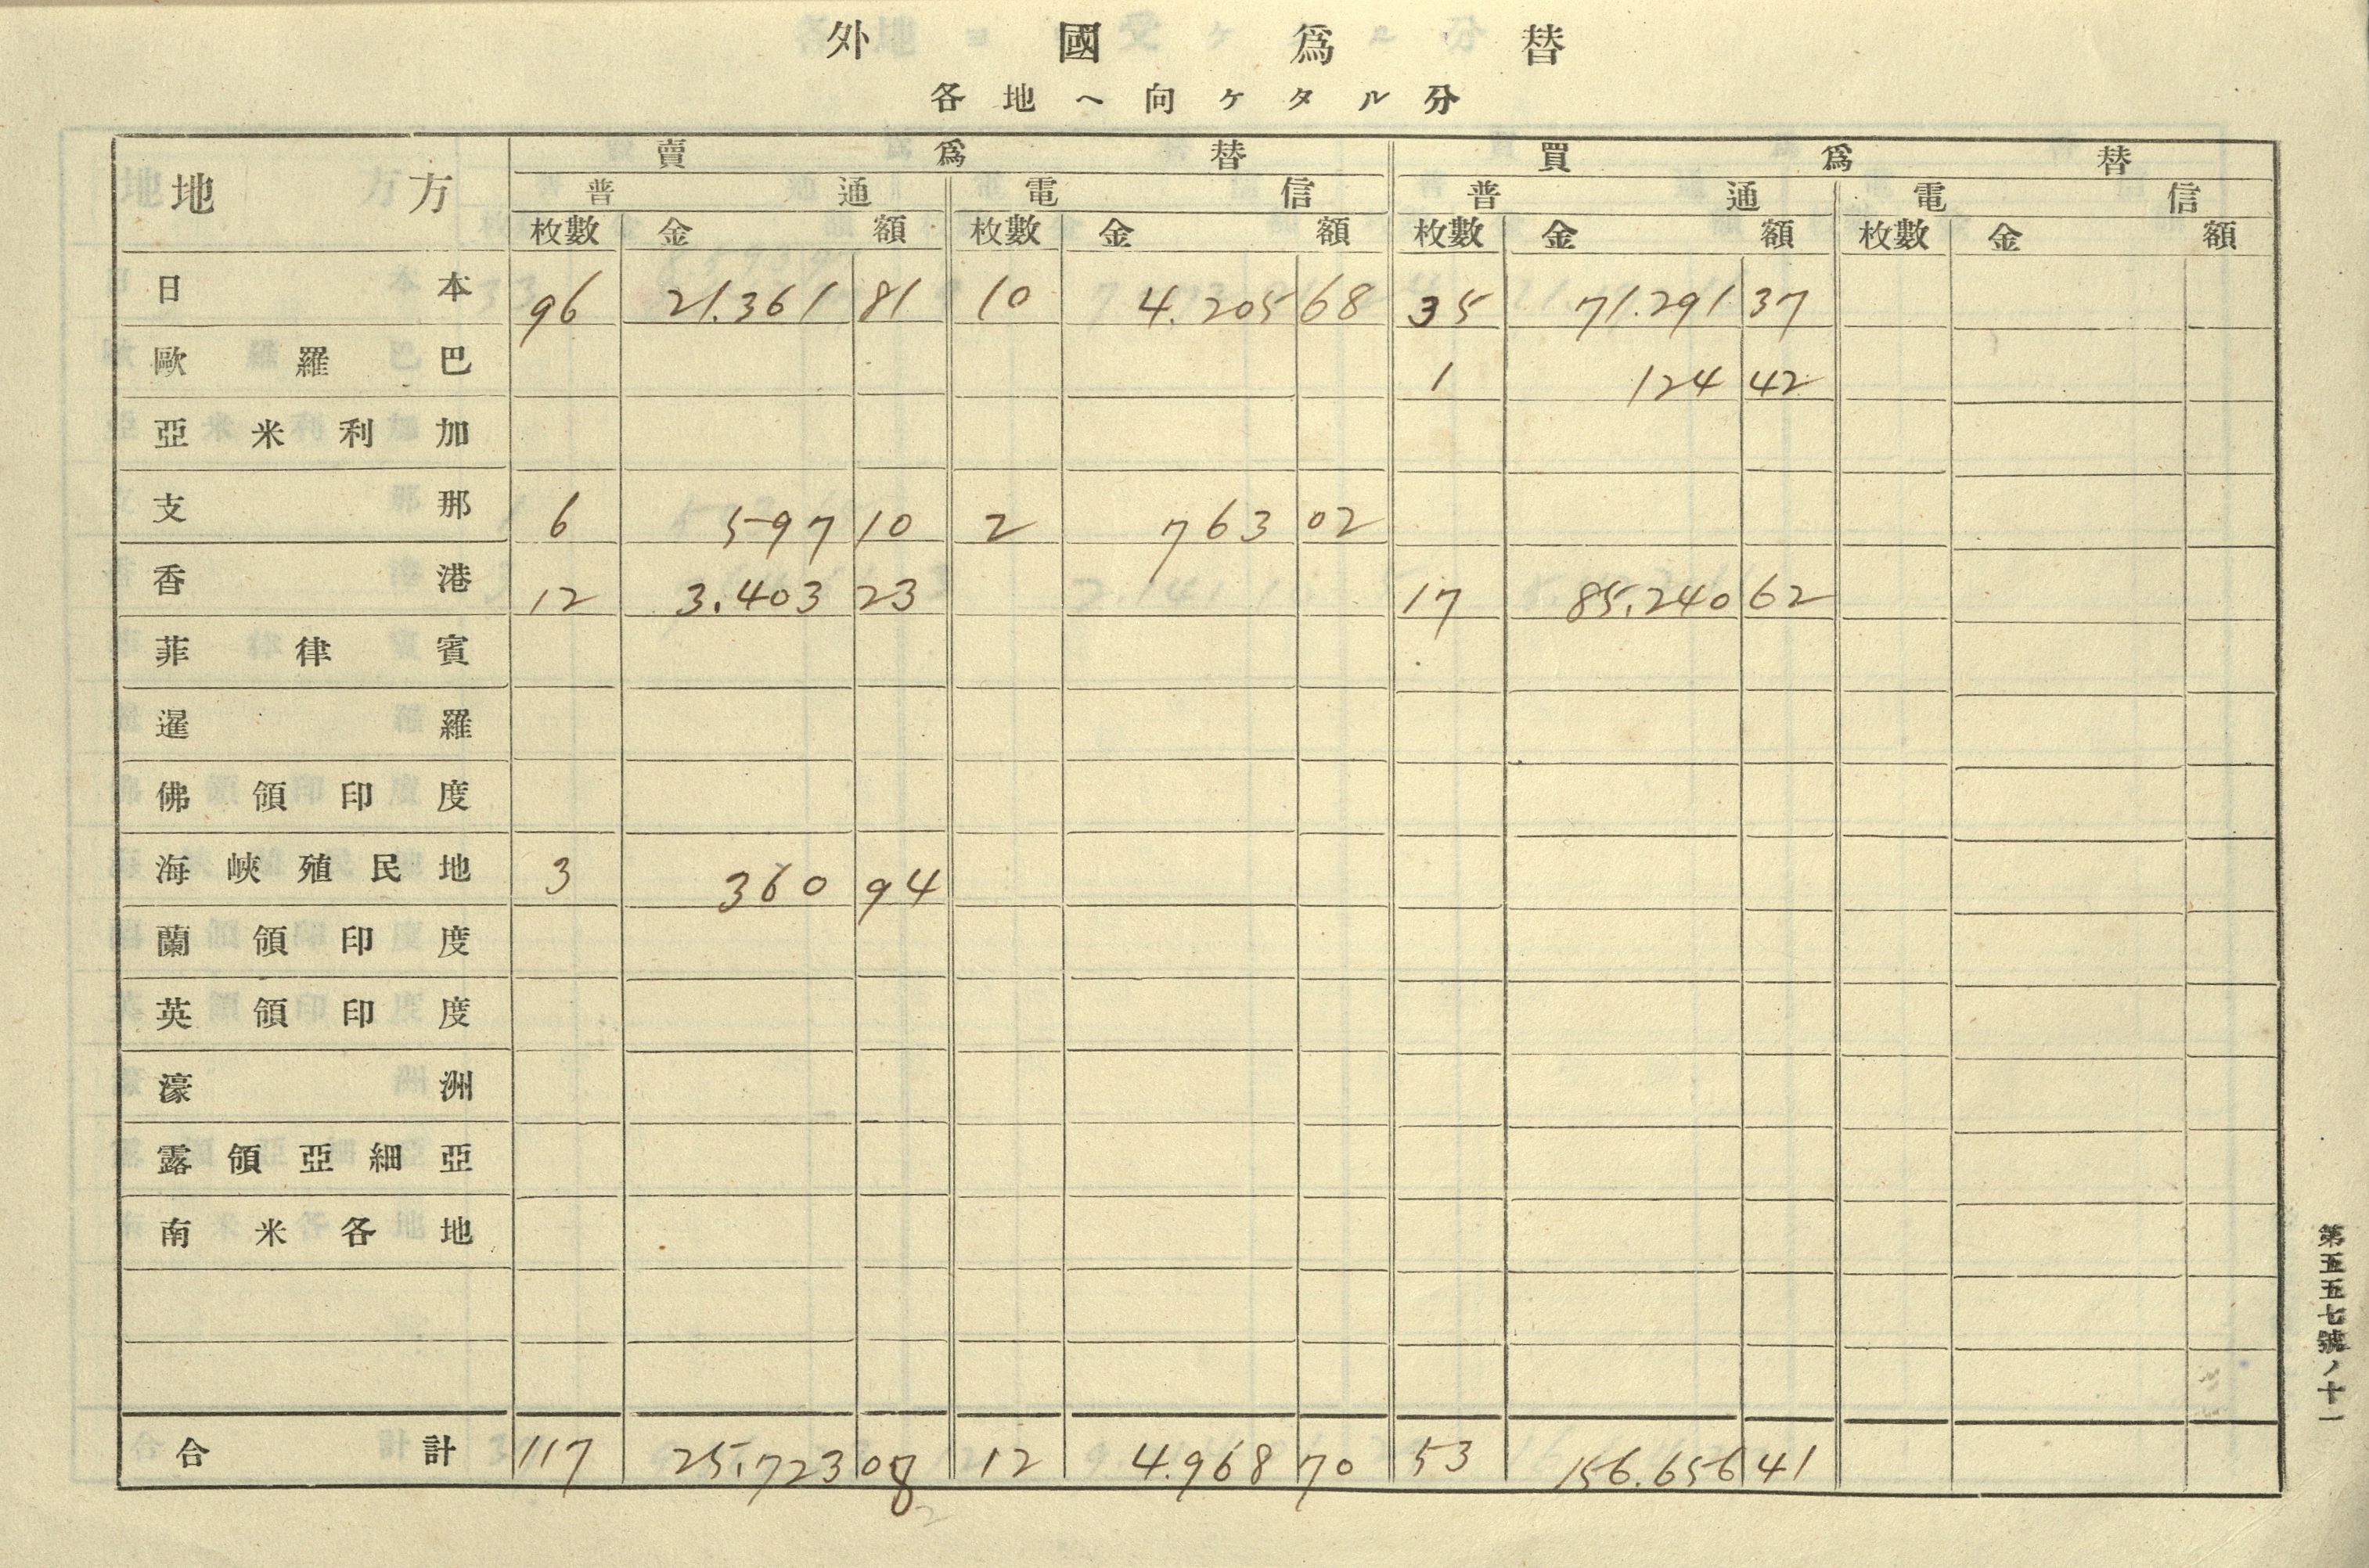 外國爲替
各地ヘ向ケタル分
地方 賣爲替 買爲替
普通 電信 普通 電信
枚數 金額 枚數 金額 枚數 金額 枚數 金額
日本 96 21.361 81 10 4.205 68 35 71.291 37
歐羅巴 1 124 42
亞米利加
支那 6 597 10 2 763 02
香港 12 3.403 23 17 85.240 62
菲律賓
暹羅
佛領印度
海峽殖民地 3 360 94
蘭領印度
英領印度
濠洲
露領亞細亞
南米各地
合計 117 25.723 08 12 4.968 70 53 156.656 41
第五五七號ノ十一